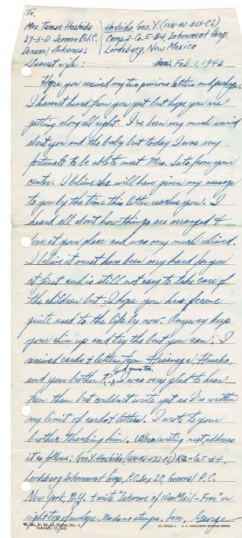 To,
Mrs Tamae Hoshida Hoshida Geo. Y. (ISN-HJ-
Jerome R.C. Comp. 2-Co. 5-B4, Internment Camp,
Denson, Arkansas Lordsburg, New Mexico
Dearest wife: Feb. 1, 1943
Hope you received my two previous letters and perhaps
I haven't heard from you yet but hope you are
getting along all right. I've been very much worried
about you and the baby but today I was very
fortunate to be able to meet Mrs. Sato from your
center. I believe she will have given my message
to you by the time this letter reaches you. I
heard all about how things are arranged &
live at your place and was very much relieved.
I believe it must have been very hard for you
at first and is still not easy to take care of
the children but I hope you have become
quite used to the life by now. Anyway keep
your chin up and try the best you can. I
received cards & letters from
and your brother I was very glad to hear
from them but couldn't write yet as I've written
my limit of cards & letters. I wrote to your
brother thanking him. (When writing put address
it as follows: Geo. Y. Hoshida Co. 5-B4,
Lordsburg Internment Camp, P.O. Box 20, General P.O.
New York, N.Y. & write "Internee of War Mail - Free" on
right top of envelope. Need no stamps. Love, George